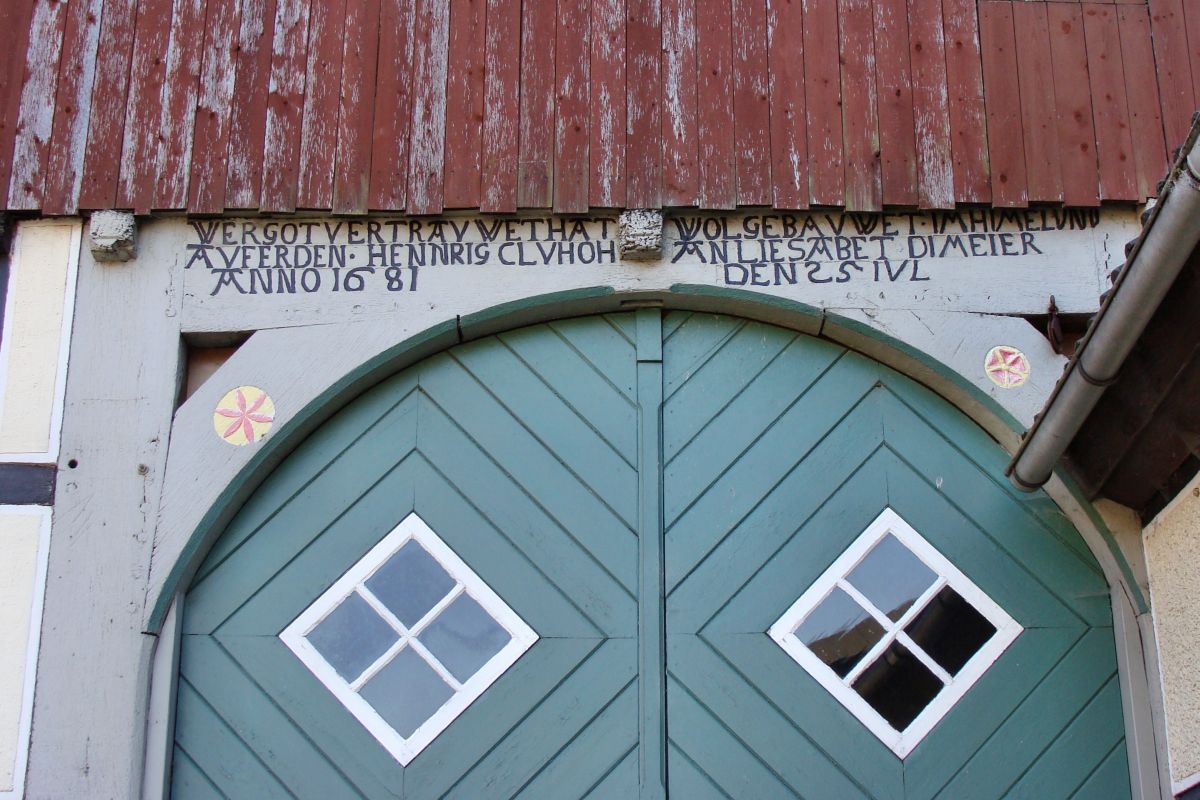 WERGOTVERTRAVWETHAT WOLGEBAVWET·IMHIMELVND
AVFERDEN·HENNRIG CLVHOH ANLIESABET DIMEIER
ANNO 1681 DEN 25 IVL